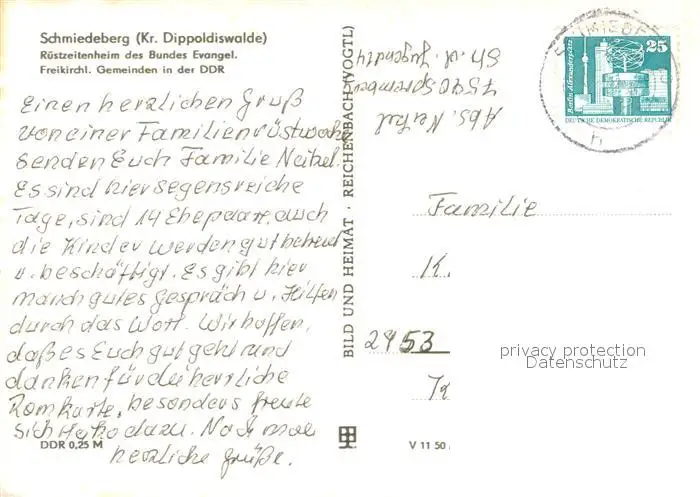 Schmiedeberg (Kr. Dippoldiswalde)
Rüstzeitenheim des Bundes Evangel.
Freikirchl. Gemeinden in der DDR
Einen herzlichen Gruß
von einer Familienrüstwoche
senden Euch Familie Neitzel.
Es sind hier segensreiche
Tage, sind 14 Ehepaare, auch
die Kinder werden gut betreut
u. beschäftigt. Es gibt hier
manch gutes Gespräch u. Hilfen
durch das Wort. Wir hoffen,
daß es Euch gut geht und
danken für die herrliche
Romkarte, besonders freute
sich dazu. Noch mal
herzliche Grüße.
DDR 0,25 M
BILD UND HEIMAT · REICHENBACH (VOGTL)
V 11 50
Abs. Neitzel
7540
Str. d. Jugend 14
25
Berlin, Alexanderplatz
DEUTSCHE DEMOKRATISCHE REPUBLIK
h
Familie
K.
2453
privacy protection
Datenschutz